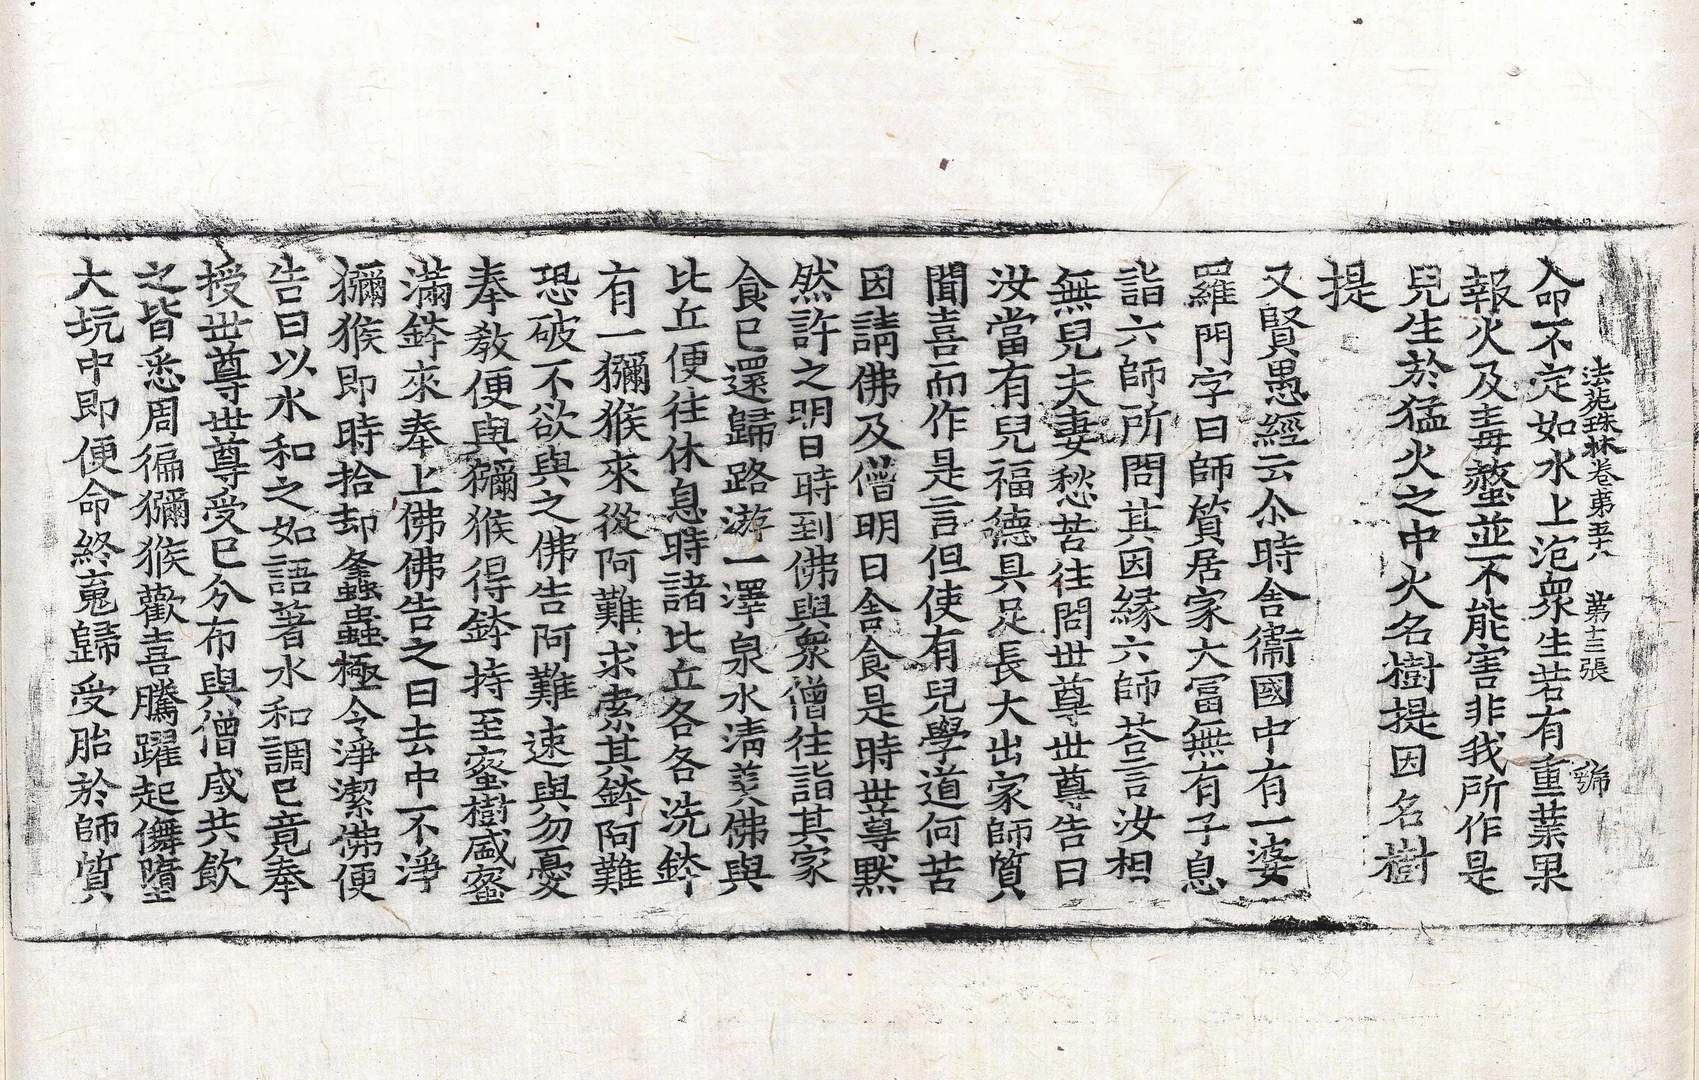 法苑珠林卷第五十六 第十三張 號
人命不定如水上泡衆生若有重業果
報火及毒螫並不能害非我所作是
兒生於猛火之中火名樹提因名樹
提
又賢愚經云尒時舍衞國中有一婆
羅門字曰師質居家大冨無有子息
詣六師所問其因緣六師荅言汝相
無兒夫妻愁苦往問世尊世尊告曰
汝當有兒福德具足長大出家師質
聞喜而作是言但使有兒學道何苦
因請佛及僧明日舍食是時世尊默
然許之明日時到佛與衆僧往詣其家
食已還歸路游一澤泉水清美佛與
比丘便往休息時諸比丘各各洗鉢
有一獼猴來從阿難求索其鉢阿難
恐破不欲與之佛告阿難速與勿憂
奉教便與獼猴得鉢持至蜜樹盛蜜
滿鉢來奉上佛佛告之曰去中不淨
獼猴即時拾却蟲極令淨潔佛便
告曰以水和之如語著水和調已竟奉
授世尊世尊受已分布與僧咸共飲
之皆悉周徧獼猴歡喜騰躍起儛墮
大坑中即便命終䰟歸受胎於師質